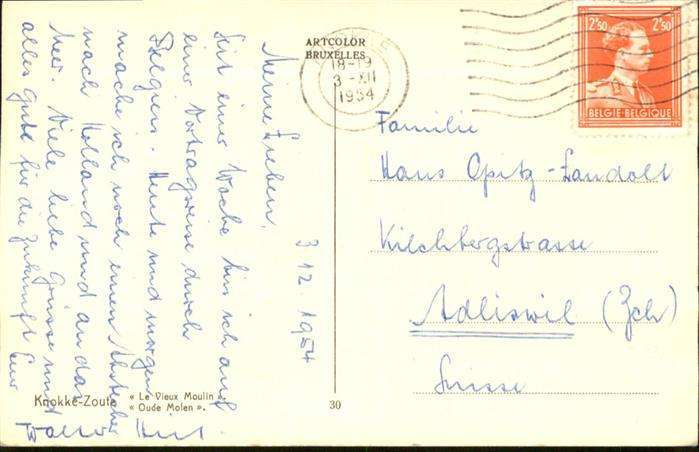 ARTCOLOR
BRUXELLES
18-19
3-XII
1954
2F50 2F50
BELGIE-BELGIQUE
3.12.1954
Meine Lieben,
Seit einer Woche bin ich auf
einer Vortragsreise durch
Belgien. Heute und morgen
mache ich noch einen Abstecher
nach Holland und an das
Meer. Viele liebe Grüsse und
alles gute für die Zukunft Euer
Familie
Hans Opitz-Landolt
Kilchbergstrasse
Adliswil (Zch)
Suisse
Knokke-Zoute
« Le Vieux Moulin ».
« Oude Molen ».
30